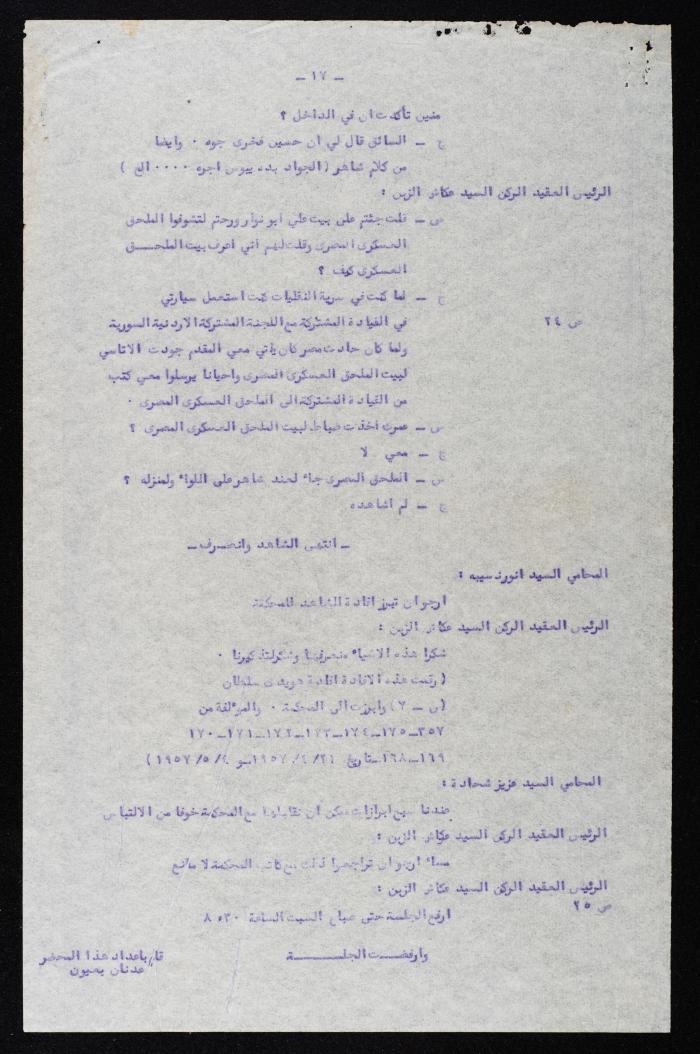 ـ ١٧ ـ
منين تأكدت ان في الداخل ؟
ج ـ السائق قال لي ان حسين فخرى جوه ٠ وايضا
من كلام شاهر ( الجواد بده يبوس اجره ٠٠٠٠ الخ )
الرئيس العقيد الركن السيد عكاش الزبن :
س ـ قلت جئتم على بيت علي ابو نوار ورحتم لتشوفوا الملحق
العسكرى المصرى وقلت لهم اني اعرف بيت الملحـــق
العسكرى كيف ؟
ج ـ لما كنت في سرية النقليات كنت استعمل سيارتي
في القيادة المشتركة مع اللجنة المشتركة الاردنية السورية
ص ٢٤
ولما كان حادث مصر كان يأتي معي المقدم جودت الاتاسي
لبيت الملحق العسكرى المصرى واحيانا يرسلوا معي كتب
من القيادة المشتركة الى الملحق العسكرى المصرى ٠
س ـ عمرك اخذت ضباط لبيت الملحق العسكرى المصرى ؟
ج ـ معي لا
س ـ الملحق المصرى جاء لعند شاهر على اللواء ولمنزله ؟
ج ـ لم اشاهده
ـ انتهى الشاهد وانصرف ـ
المحامي السيد انور نسيبه :
ارجو ان تبرز افادة الشاهد للمحكمة
الرئيس العقيد الركن السيد عكاش الزبن :
شكرا هذه الاشياء منعرفها ونشكر لتذكيرنا ٠
( رقمت هذه الافادة افادة هويدى سلطان
( ن ـ ٧ ) وابرزت الى المحكمة ٠ والمؤلفة من
٣٥٧ـ١٧٥ـ١٧٤ـ١٧٣ـ١٧٢ـ١٧١ـ١٧٠
١٦٩ـ١٦٨ـتاريخ
المحامي السيد عزيز شحادة :
عندنا سبع ابرازات ممكن ان نقابلها مع المحكمة خوفا من الالتباس
الرئيس العقيد الركن السيد عكاش الزبن :
مساء ارجو ان تراجعوا ذلك مع كاتب المحكمة لا مانع
الرئيس العقيد الركن السيد عكاش الزبن :
ص ٢٥
ارفع الجلسة حتى صباح السبت الساعة ٨٫٣٠
وارفضـــت الجلســـــــة
قام باعداد هذا المحضر
عدنان بعيون